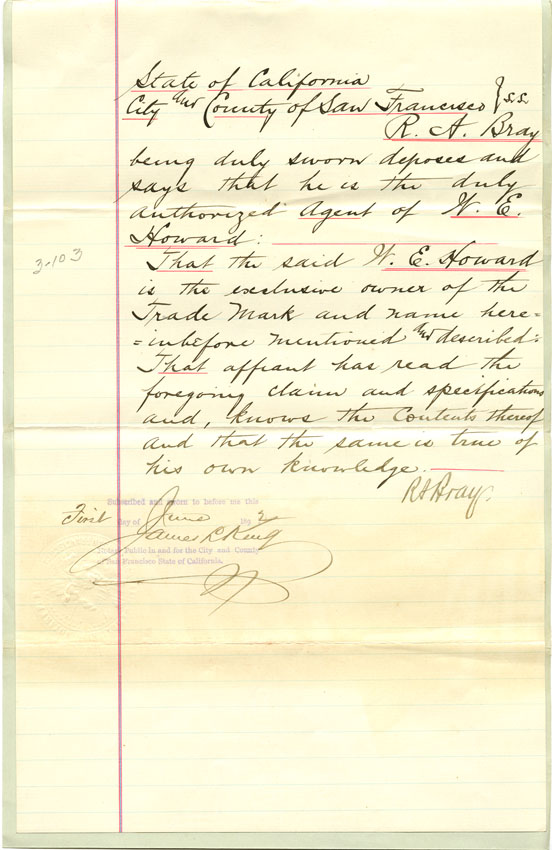 State of California
City and County of San Francisco } s.s.
R. A. Bray
being duly sworn deposes and
says that he is the duly
authorized Agent of W. E.
Howard:
That the said W. E. Howard
is the exclusive owner of the
Trade Mark and name here=
=inbefore mentioned and described:
That affiant has read the
foregoing claim and specifications
and, knows the Contents thereof
and that the same is true of
his own knowledge.
R A Bray.
3-103
Subscribed and sworn to before me this
First day of June 189
James L King
Notary Public in and for the City and County
of San Francisco State of California.